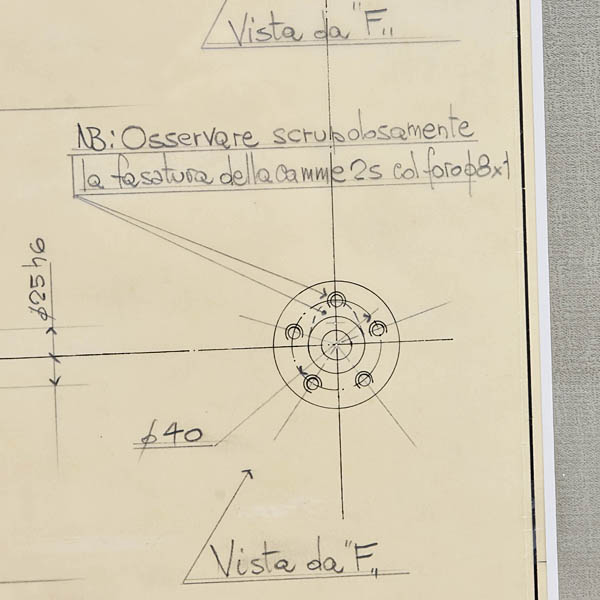 Vista da "F"
NB: Osservare scrupolosamente
la fasatura della camme 2s col foro ϕ8x1
ϕ25 h6
ϕ40
Vista da "F"